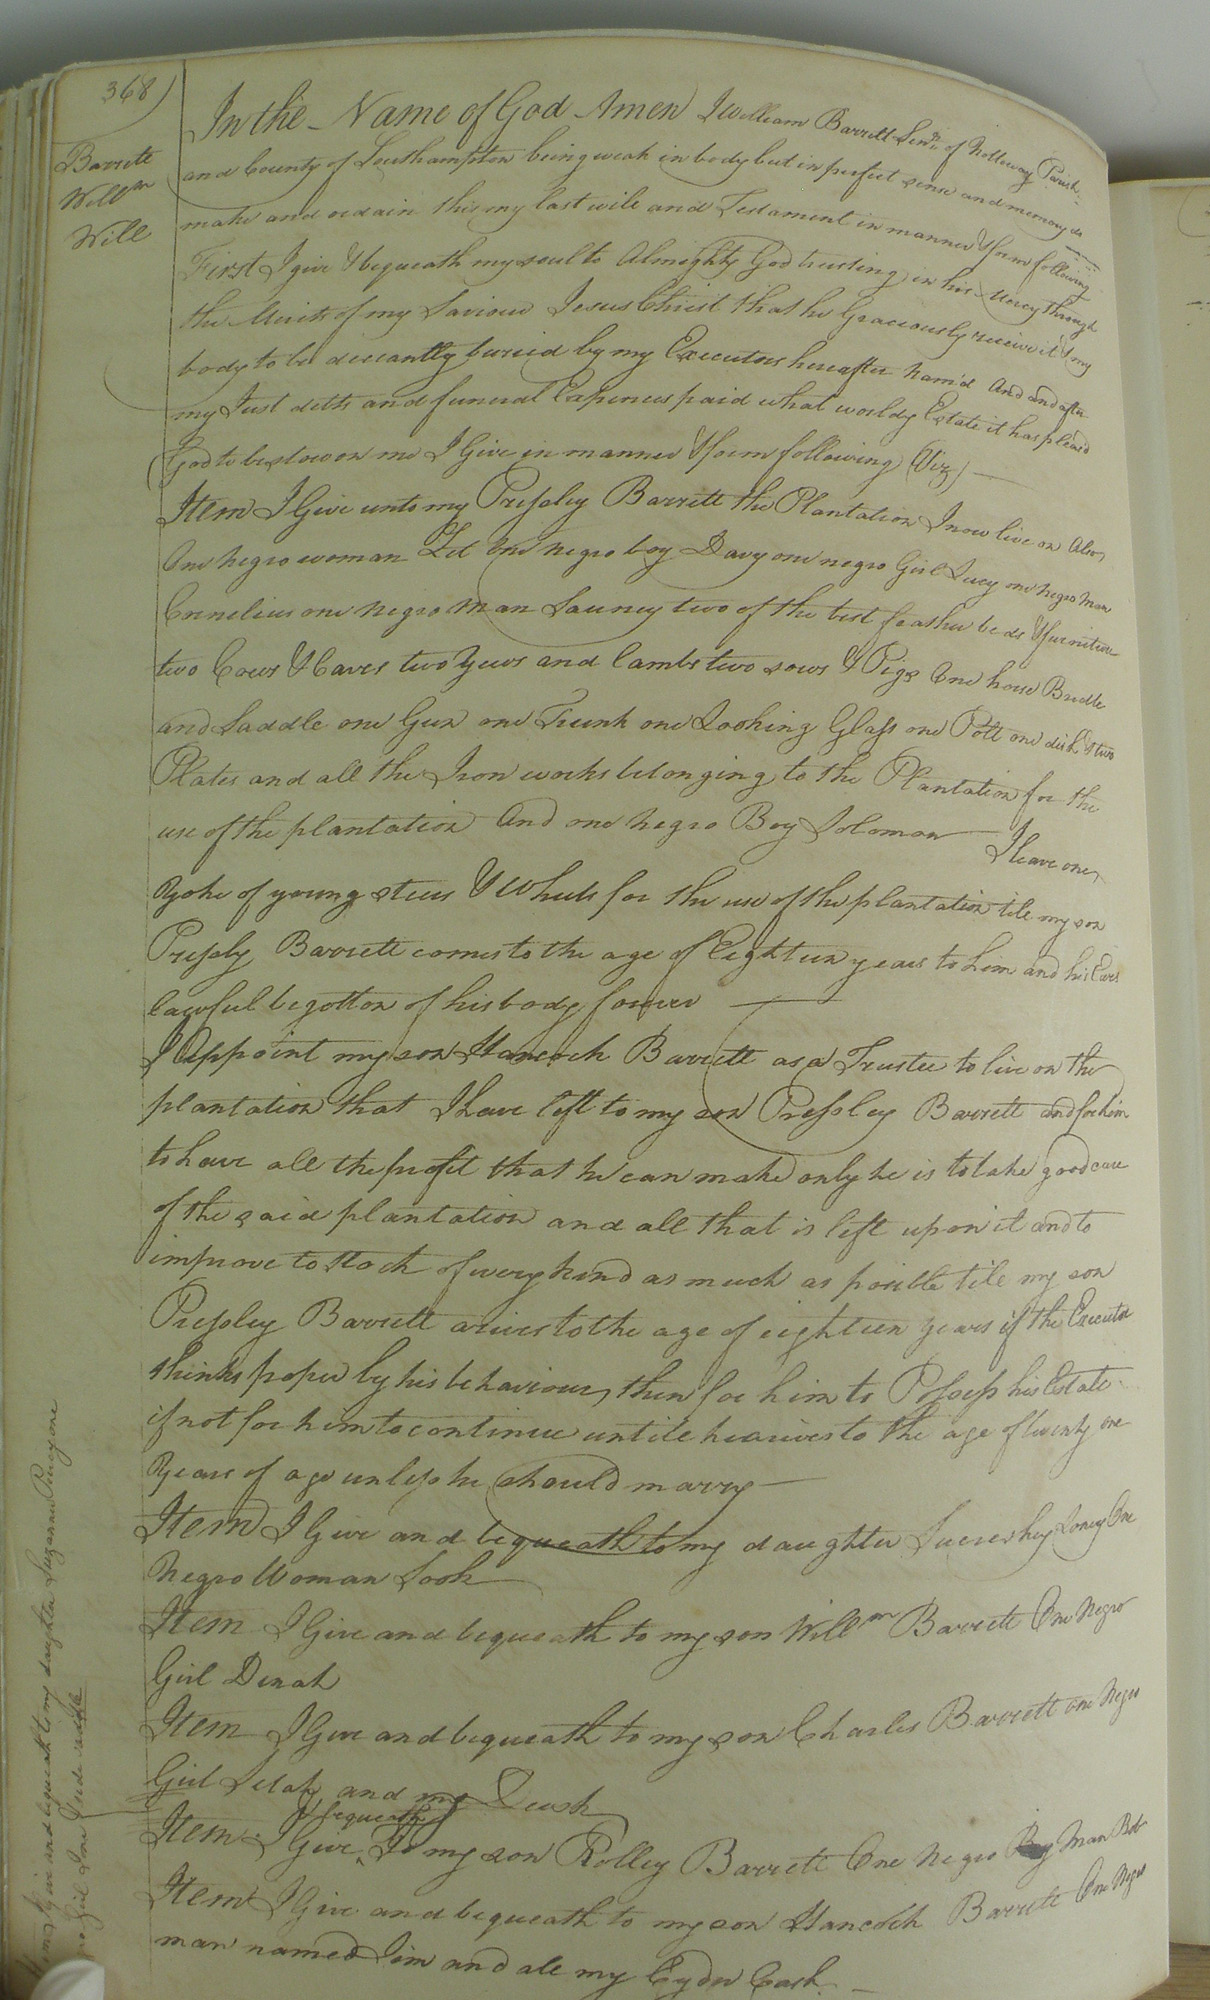 368)
Barrett
Willm
Will
In the Name of God Amen I William Barrett Senr. of Nottoway Parish
and County of Southampton being weak in body but in perfect sense and memory do
make and ordain this my last will and Testament in manner & form following
First I give & bequeath my soul to Almighty God trusting in his Mercy through
the Merits of my Saviour Jesus Christ that he Graciously receive it & my
body to be deceantly buried by my Executors hereafter Nam'd And and after
my Just debts and funeral Expences paid what worldy Estate it has pleasd
God to bestow on me I Give in manner & form following (Viz)
Item I Give unto my Pressley Barrett the Plantation I now live on Also
One negro woman One negro boy Davy one negro Girl Lucy one negro man
Cornelius one negro man Sauney two of the best feather beds & furniture
two Cows & Caves two Yews and lambs two sows & Pigs One horse Bridle
and Saddle one Gun one Trunk one Looking Glass one Pott one dish & two
Plates and all the Iron works belonging to the Plantation for the
use of the plantation And one negro Boy Soloman I leave one
Yoke of young steers & Wheels for the use of the plantation till my son
Pressly Barrett comes to the age of Eighteen years to him and his
lawful begotton of his body forever
I Appoint my son Hancock Barrett as a Trustee to live on the
plantation that I have left to my son Pressley Barrett and for him
to have all the profit that he can make only he is to take good care
of the said plantation and all that is left upon it and to
improve to Stock of every kind as much as posible till my son
Pressley Barrett arives to the age of eighteen years if the Executor
thinks proper by his behaviour, then for him to Possess his Estate
if not for him to continue untill he arives to the age of twenty one
Years of age unless he should marry
Item I Give and bequeath to my daughter One
Negro Woman Sook
Item I Give and bequeath to my son Willm Barrett One Negro
Girl Dinah
Item I Give and bequeath to my son Charles Barrett one Negro
Girl and my Desk
Item I Give & bequeath To my son Rolley Barrett One Negro Man Bob
Item I Give and bequeath to my son Hancock Barrett One Negro
man named Jim and all my Cyder Cask
I Give and bequeath to my daughter Suzanna one
Girl One Side saddle